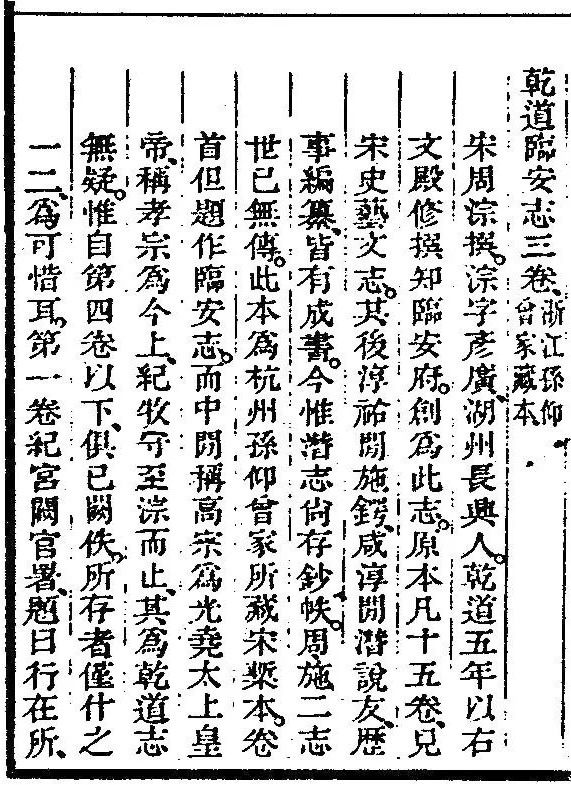 乾道臨安志三卷、浙江孫仰曾家藏本、
宋周淙撰。淙字彥廣、湖州長興人。乾道五年以右
文殿修撰知臨安府。創爲此志。原本凡十五卷、見
宋史藝文志。其後淳祐閒施鍔、咸淳閒潛說友、歷
事編纂、皆有成書。今惟潛志尚存鈔帙。周、施二志
世已無傳。此本爲杭州孫仰曾家所藏宋槧本。卷
首但題作臨安志。而中閒稱高宗爲光堯太上皇
帝、稱孝宗爲今上、紀牧守至淙而止、其爲乾道志
無疑。惟自第四卷以下、俱已闕佚。所存者僅什之
一二、爲可惜耳。第一卷紀宮闕官署、題曰行在所、